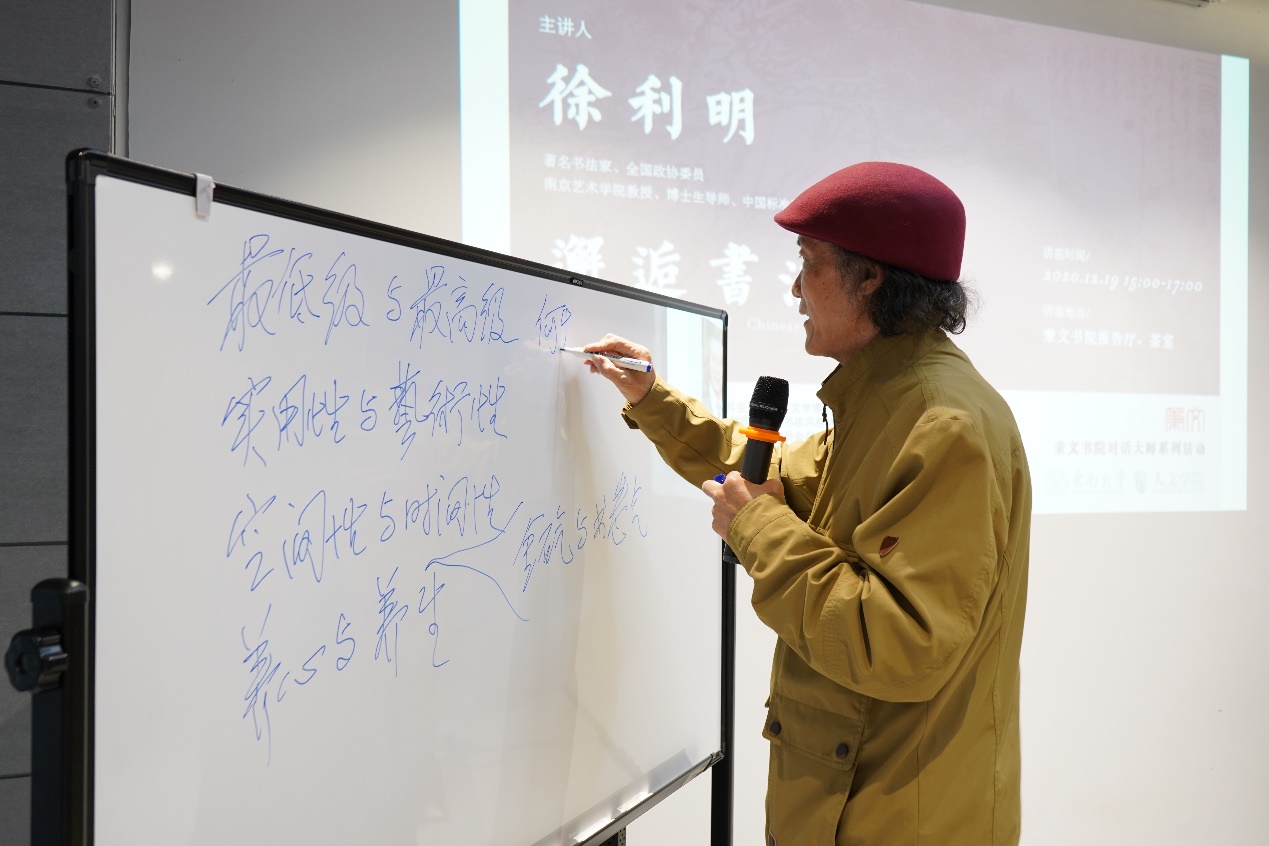 主讲人
徐利明
著名书法家、全国政协委员
南京艺术学院教授、博士生导师、中国标准
邂逅書
Chinese
讲座时间/
2020.12.19 15:00-17:00
讲座地点/
秉文书院报告厅、茶室
秉文书院对话大师系列活动
东南大学 人文学院
最低级与最高级
实用性与藝術性
空间性与时间性
与书卷气
养心与养生